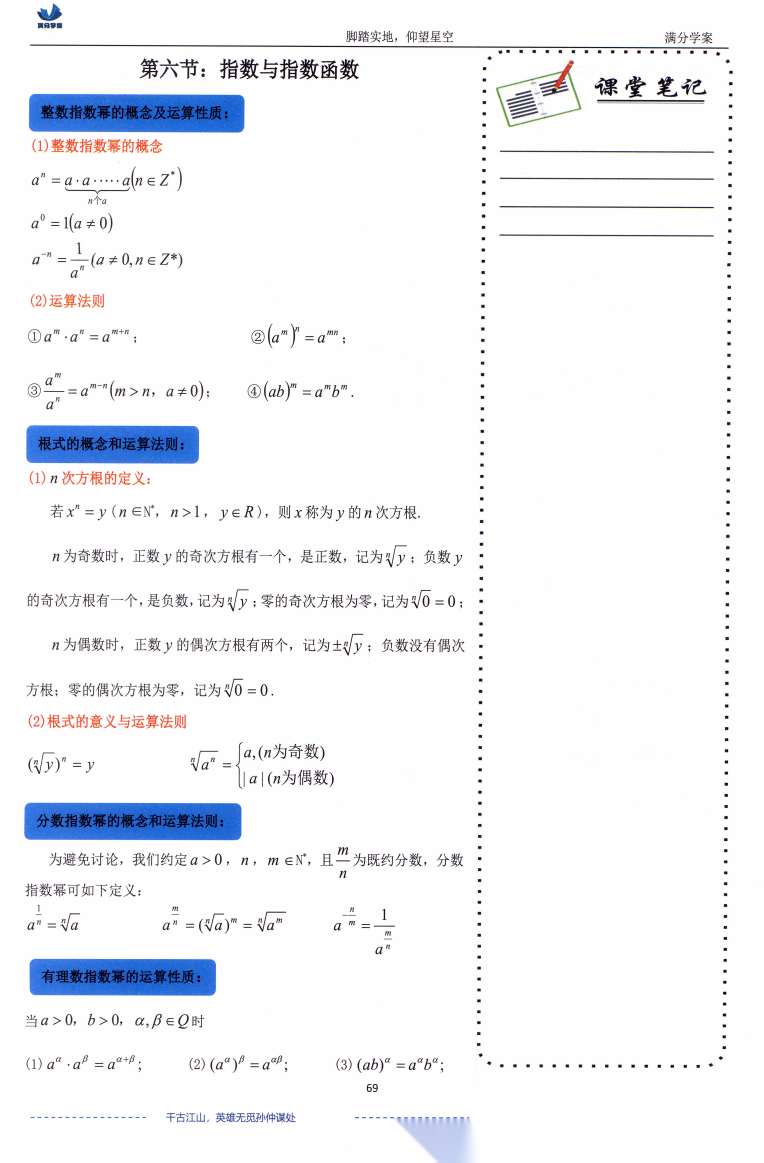 满分学案
脚踏实地，仰望星空
满分学案
第六节：指数与指数函数
课堂笔记
整数指数幂的概念及运算性质：
(1)整数指数幂的概念
aⁿ = a·a·····a(n∈Z*)
n个a
a⁰ = 1(a ≠ 0)
a⁻ⁿ = 1/aⁿ (a ≠ 0, n∈Z*)
(2)运算法则
①aᵐ·aⁿ = aᵐ⁺ⁿ； ②(aᵐ)ⁿ = aᵐⁿ；
③aᵐ/aⁿ = aᵐ⁻ⁿ(m > n，a ≠ 0)； ④(ab)ᵐ = aᵐbᵐ.
根式的概念和运算法则：
(1) n 次方根的定义：
若 xⁿ = y ( n ∈N*， n > 1， y∈R )，则 x 称为 y 的 n 次方根.
n 为奇数时，正数 y 的奇次方根有一个，是正数，记为 ⁿ√y；负数 y
的奇次方根有一个，是负数，记为 ⁿ√y；零的奇次方根为零，记为 ⁿ√0 = 0；
n 为偶数时，正数 y 的偶次方根有两个，记为 ±ⁿ√y；负数没有偶次
方根；零的偶次方根为零，记为 ⁿ√0 = 0.
(2)根式的意义与运算法则
(ⁿ√y)ⁿ = y ⁿ√aⁿ = { a, (n为奇数)
| a | (n为偶数)
分数指数幂的概念和运算法则：
为避免讨论，我们约定 a > 0， n， m ∈N*，且 m/n 为既约分数，分数
指数幂可如下定义：
a^(1/n) = ⁿ√a a^(m/n) = (ⁿ√a)ᵐ = ⁿ√aᵐ a^(-n/m) = 1/a^(m/n)
有理数指数幂的运算性质：
当 a > 0，b > 0，α, β∈Q 时
(1) a^α·a^β = a^(α+β); (2) (a^α)^β = a^(αβ); (3) (ab)^α = a^α b^α;
69
千古江山，英雄无觅孙仲谋处